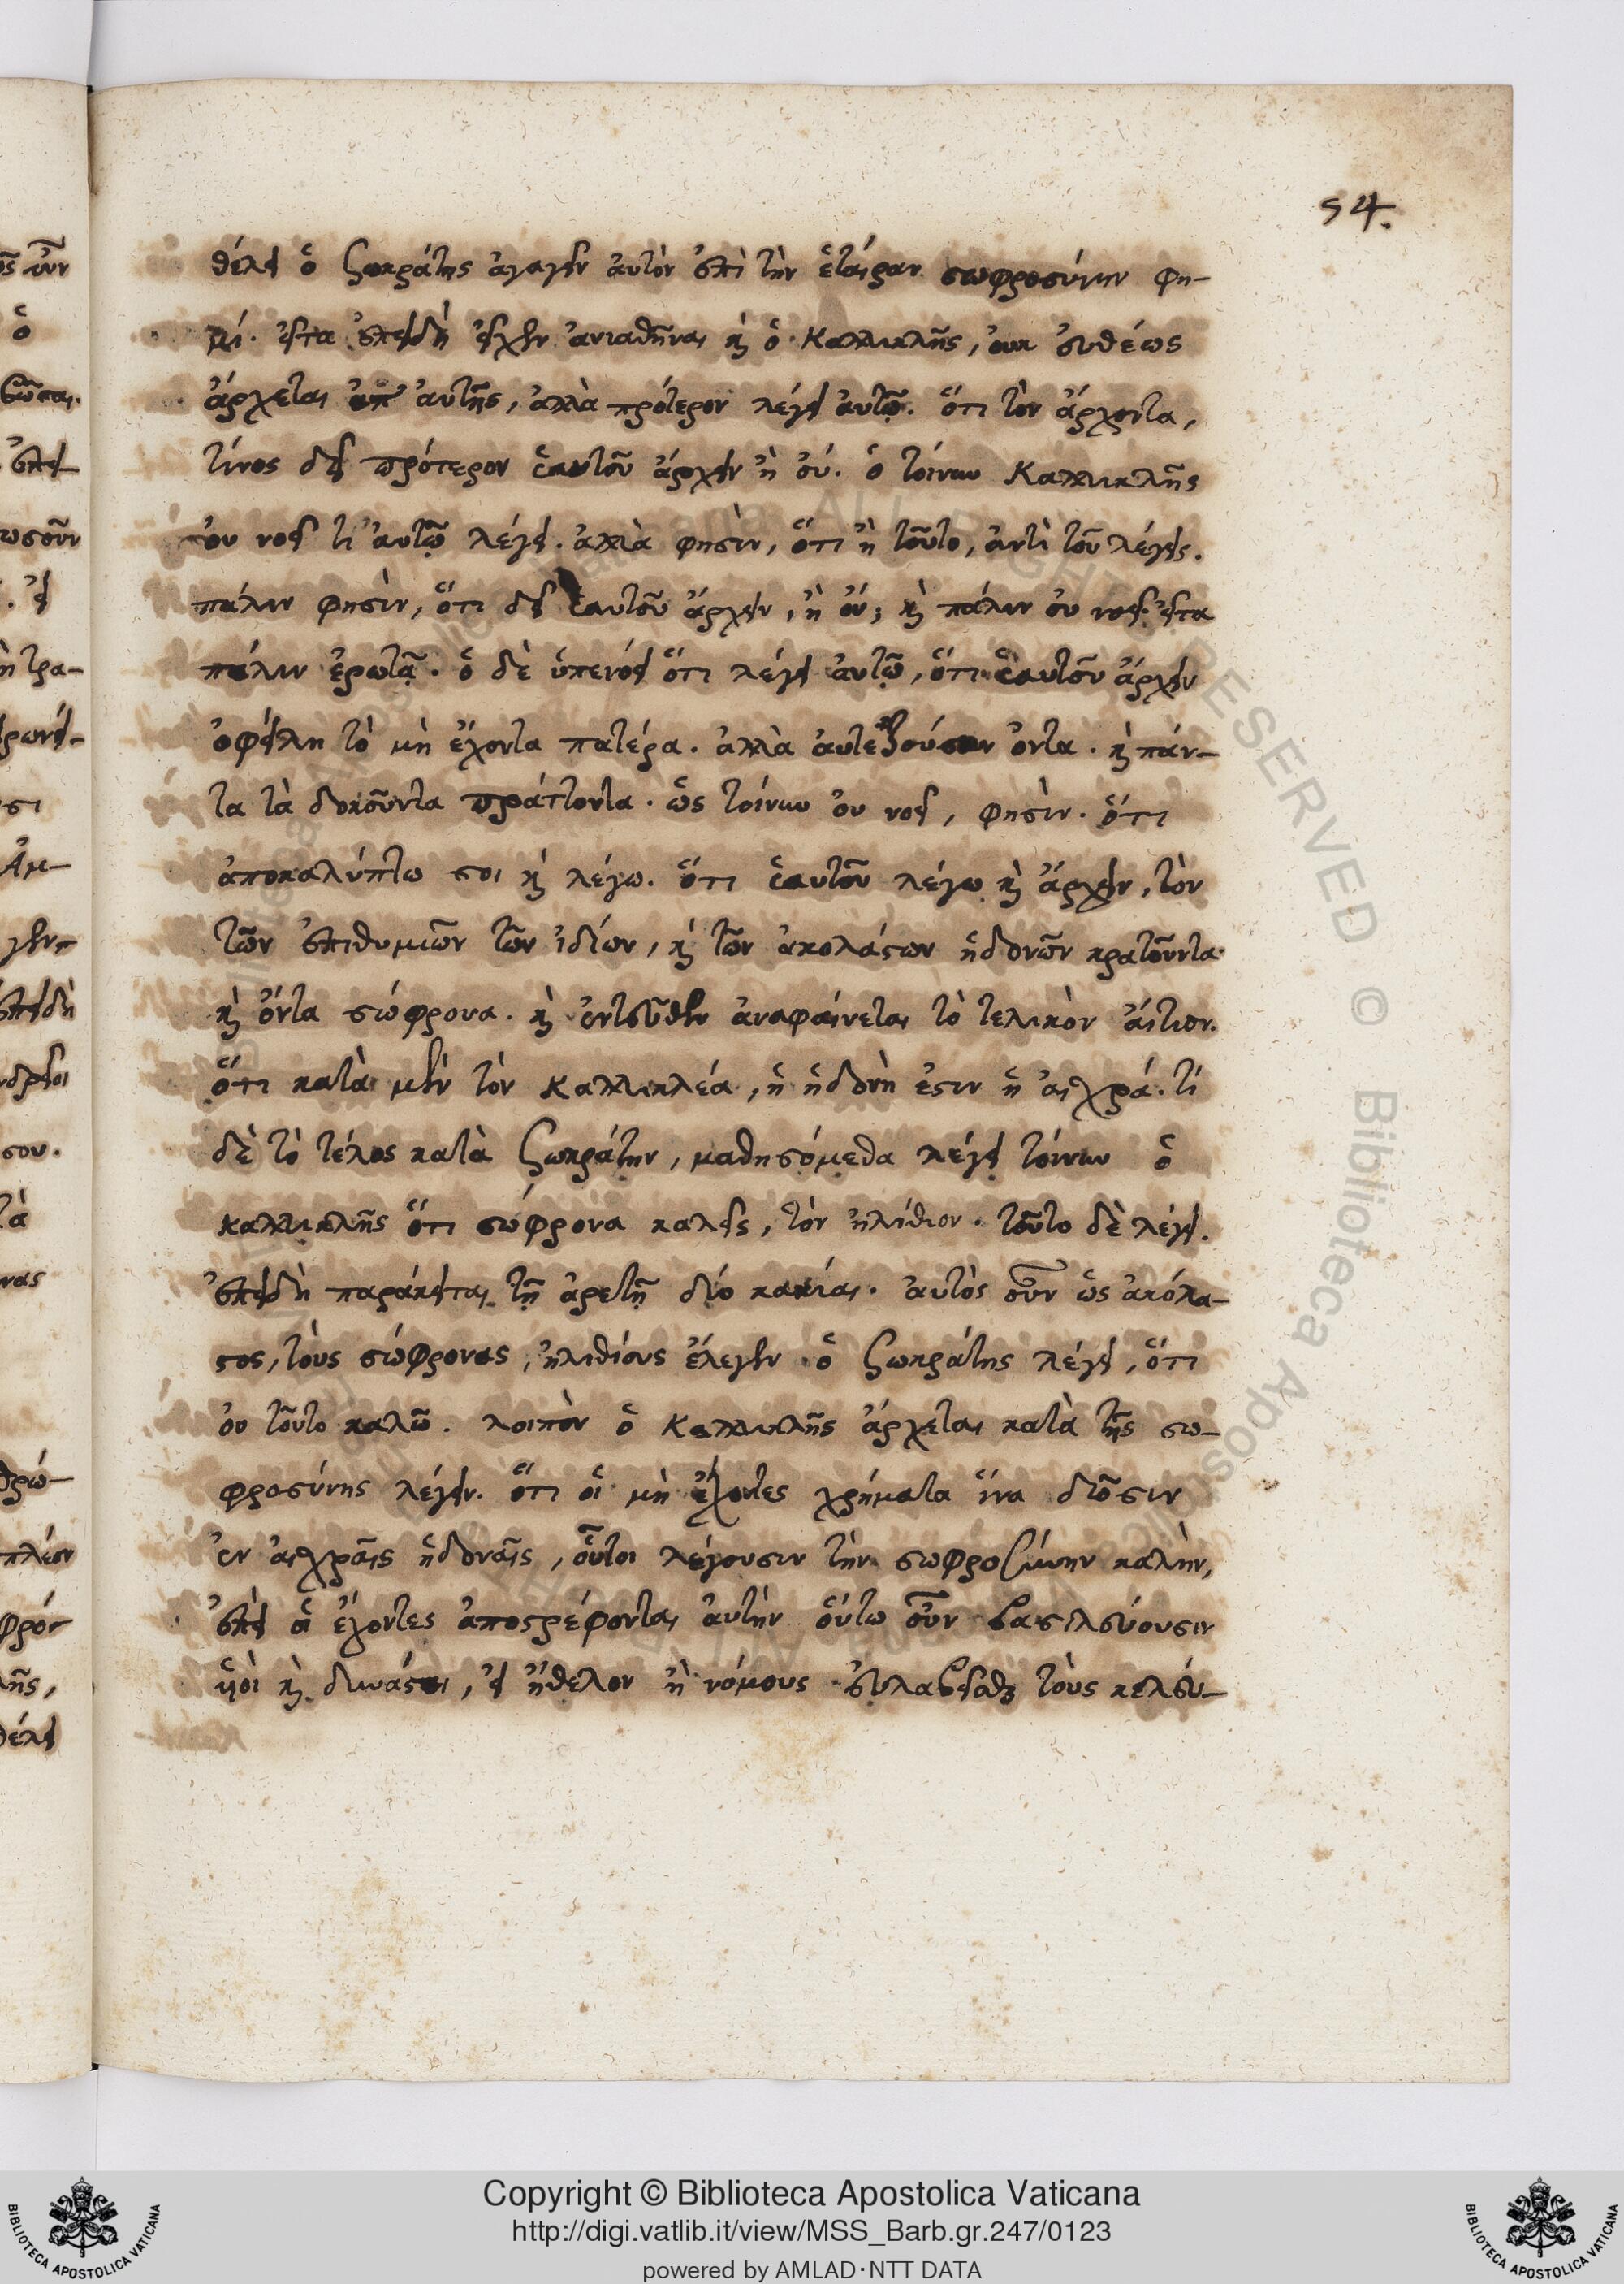 54.
θέλει ὁ Σωκράτης ἀγαγεῖν ἀυτὸν ἐπὶ τὴν ἑταίραν σωφροσύνην φη-
μί. εἶτα ἐπειδὴ εἶχεν ἀνιαθῆναι καὶ ὁ Καλλικλῆς, ουκ ἐυθέως
ἄρχεται ἀυτῆς, ἀλλὰ πρότερον λέγει ἀυτῶ. ὅτι τὸν ἄρχοντα,
τίνος δεῖ πρότερον ἑαυτοῦ ἄρχειν ἢ ὀύ. ὁ τοίνυν Καλλικλῆς
ὀυ νοεῖ τί ἀυτῶ λέγει. ἀλλὰ φησὶν, ὅτι ἢ τοῦτο, ἀντὶ τοῦ λέγεις.
πάλιν φησὶν, ὅτι δεῖ ἑαυτοῦ ἄρχειν, ἢ ὀύ; καὶ πάλιν ὀυ νοεῖ. εἶτα
πάλιν ἐρωτᾶ. ὁ δὲ ὑπενόει ὅτι λέγει ἀυτῶ, ὅτι ἑαυτοῦ ἄρχειν
ὀφείλη τὸ μὴ ἔχοντα πατέρα. ἀλλὰ ἀυτεξούσιον ὄντα. καὶ πάν-
τα τὰ δοκοῦντα πράττοντα. ὡς τοίνυν ὀυ νοεῖ, φησὶν. ὅτι
ἀποκαλύπτω σοι καὶ λέγω. ὅτι ἑαυτοῦ λέγω καὶ ἄρχειν, τὸν
τῶν ἐπιθυμιῶν τῶν ἰδίων, καὶ τῶν ἀκολάστων ἡδονῶν κρατοῦντα
καὶ ὄντα σώφρονα. καὶ ἐντεῦθεν ἀναφαίνεται τὸ τελικὸν ἄιτιον.
ὅτι κατὰ μὲν τὸν Καλλικλέα, ἡ ἡδονὴ ἐστιν ἡ ἀισχρά. τί
δὲ τὸ τέλος κατὰ Σωκράτην, μαθησόμεθα λέγει τοίνυν ὁ
καλλικλῆς ὅτι σώφρονα καλεῖς, τὸν ἠλίθιον. τοῦτο δὲ λέγει.
ἐπειδὴ παράκειται τῆ ἀρετῆ δύο κακίαι. ἀυτὸς οὖν ὡς ἀκόλα-
στος, τοὺς σώφρονας, ἠλιθίους ἔλεγεν ὁ Σωκράτης λέγει, ὅτι
ὀυ τοῦτο καλῶ. λοιπὸν ὁ Καλλικλῆς ἄρχεται κατὰ τῆς σω-
φροσύνης λέγειν. ὅτι οἱ μὴ ἔχοντες χρήματα ἵνα δῶσιν
ἐν ἀισχραῖς ἡδοναῖς, οὗτοι λέγουσιν τὴν σωφροσύνην καλὴν,
ἐπεὶ οἱ ἔχοντες ἀποστρέφονται ἀυτὴν ὅυτω οὖν βασιλεύουσιν
υἱοὶ καὶ δυνάσται, εἰ ἤθελον ἢ νόμους ἐυλαβεῖσθαι τοὺς κελεύ-
Copyright © Biblioteca Apostolica Vaticana
http://digi.vatlib.it/view/MSS_Barb.gr.247/0123
powered by AMLAD·NTT DATA